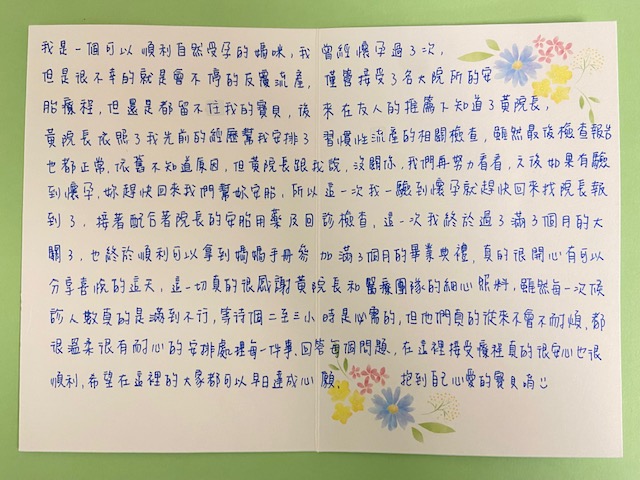 我是一個可以順利自然受孕的媽咪,我曾經懷孕過3次,
但是很不幸的就是會不停的反覆流產,僅管接受了各大院所的安
胎療程,但還是都留不住我的寶貝,後來在友人的推薦下知道了黃院長,
黃院長依照了我先前的經歷幫我安排了習慣性流產的相關檢查,雖然最後檢查報告
也都正常,依舊不知道原因,但黃院長跟我說,沒關係,我們再努力看看,之後如果有驗
到懷孕,妳趕快回來我們幫妳安胎,所以這一次我一驗到懷孕就趕快回來找院長報
到了,接著配合著院長的安胎用藥及回診檢查,這一次我終於過了滿3個月的大
關了,也終於順利可以拿到媽媽手冊參加滿3個月的畢業典禮,真的很開心有可以
分享喜悅的這天,這一切真的很感謝黃院長和醫療團隊的細心照料,雖然每一次候
診人數真的是滿到不行,等待個二至三小時是必需的,但他們真的從來不會不耐煩,都
很溫柔很有耐心的安排處理每一件事,回答每個問題,在這裡接受療程真的很安心也很
順利,希望在這裡的大家都可以早日達成心願,抱到自己心愛的寶貝唷☺